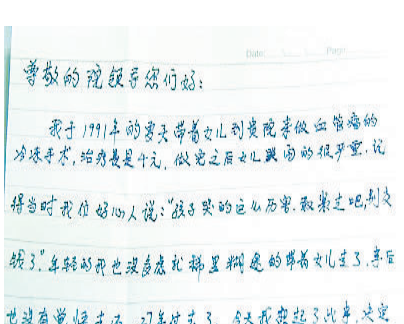 Date: Page:
尊敬的院领导您们好:
我于1991年的夏天带着女儿到贵院来做血管瘤的
冷冻手术,治疗费是千元,做完之后女儿哭闹的很严重,记
得当时我位好心人说:"孩子哭的这么厉害,取来走吧,别交
钱了."年轻的我也没多虑就稀里糊涂的带着女儿走了,事后
也没有觉悟去还,27年过去了,今天我想起了此事,决定